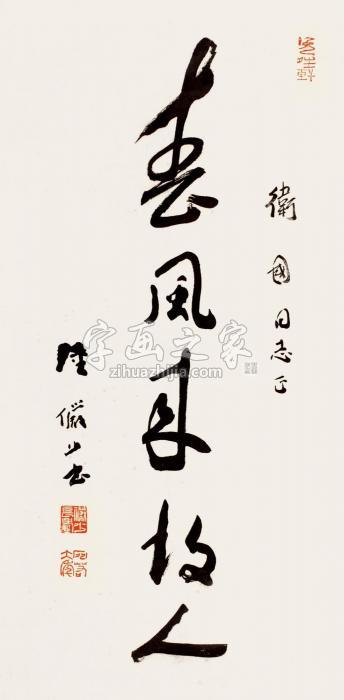 衛國同志正
春風來故人
陸儼少書
字画之家
zihuazhijia.com